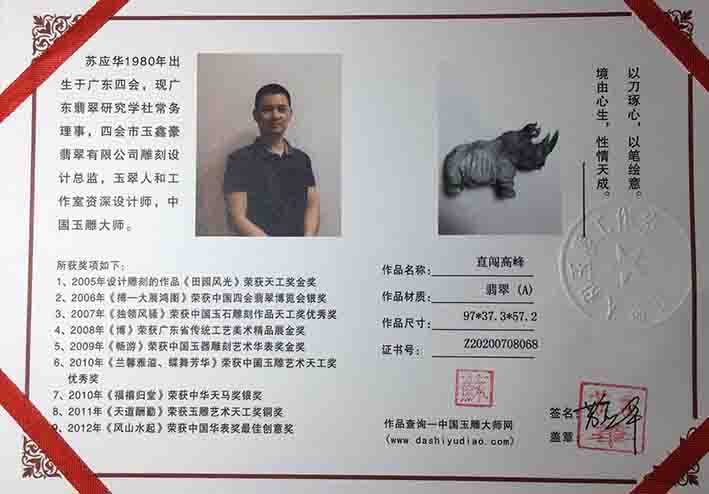 苏应华1980年出
生于广东四会，现广
东翡翠研究学社常务
理事，四会市玉鑫豪
翡翠有限公司雕刻设
计总监，玉翠人和工
作室资深设计师，中
国玉雕大师。
以刀琢心，以笔绘意。
境由心生，性情天成。
所获奖项如下：
1、2005年设计雕刻的作品《田园风光》荣获天工奖金奖
2、2006年《搏一大展鸿图》荣获中国四会翡翠博览会银奖
3、2007年《独领风骚》荣获中国玉石雕刻作品天工奖优秀奖
4、2008年《博》荣获广东省传统工艺美术精品展金奖
5、2009年《畅游》荣获中国玉器雕刻艺术华表奖金奖
6、2010年《兰馨雅溢、蝶舞芳华》荣获中国玉雕艺术天工奖
优秀奖
7、2010年《福禧归堂》荣获中华天马奖银奖
8、2011年《天道酬勤》荣获玉雕艺术天工奖铜奖
9、2012年《风山水起》荣获中国华表奖最佳创意奖
作品名称： 直闯高峰
作品材质： 翡翠 (A)
作品尺寸： 97*37.3*57.2
证书号： Z20200708068
作品查询—中国玉雕大师网
(www.dashiyudiao.com)
签名
盖章